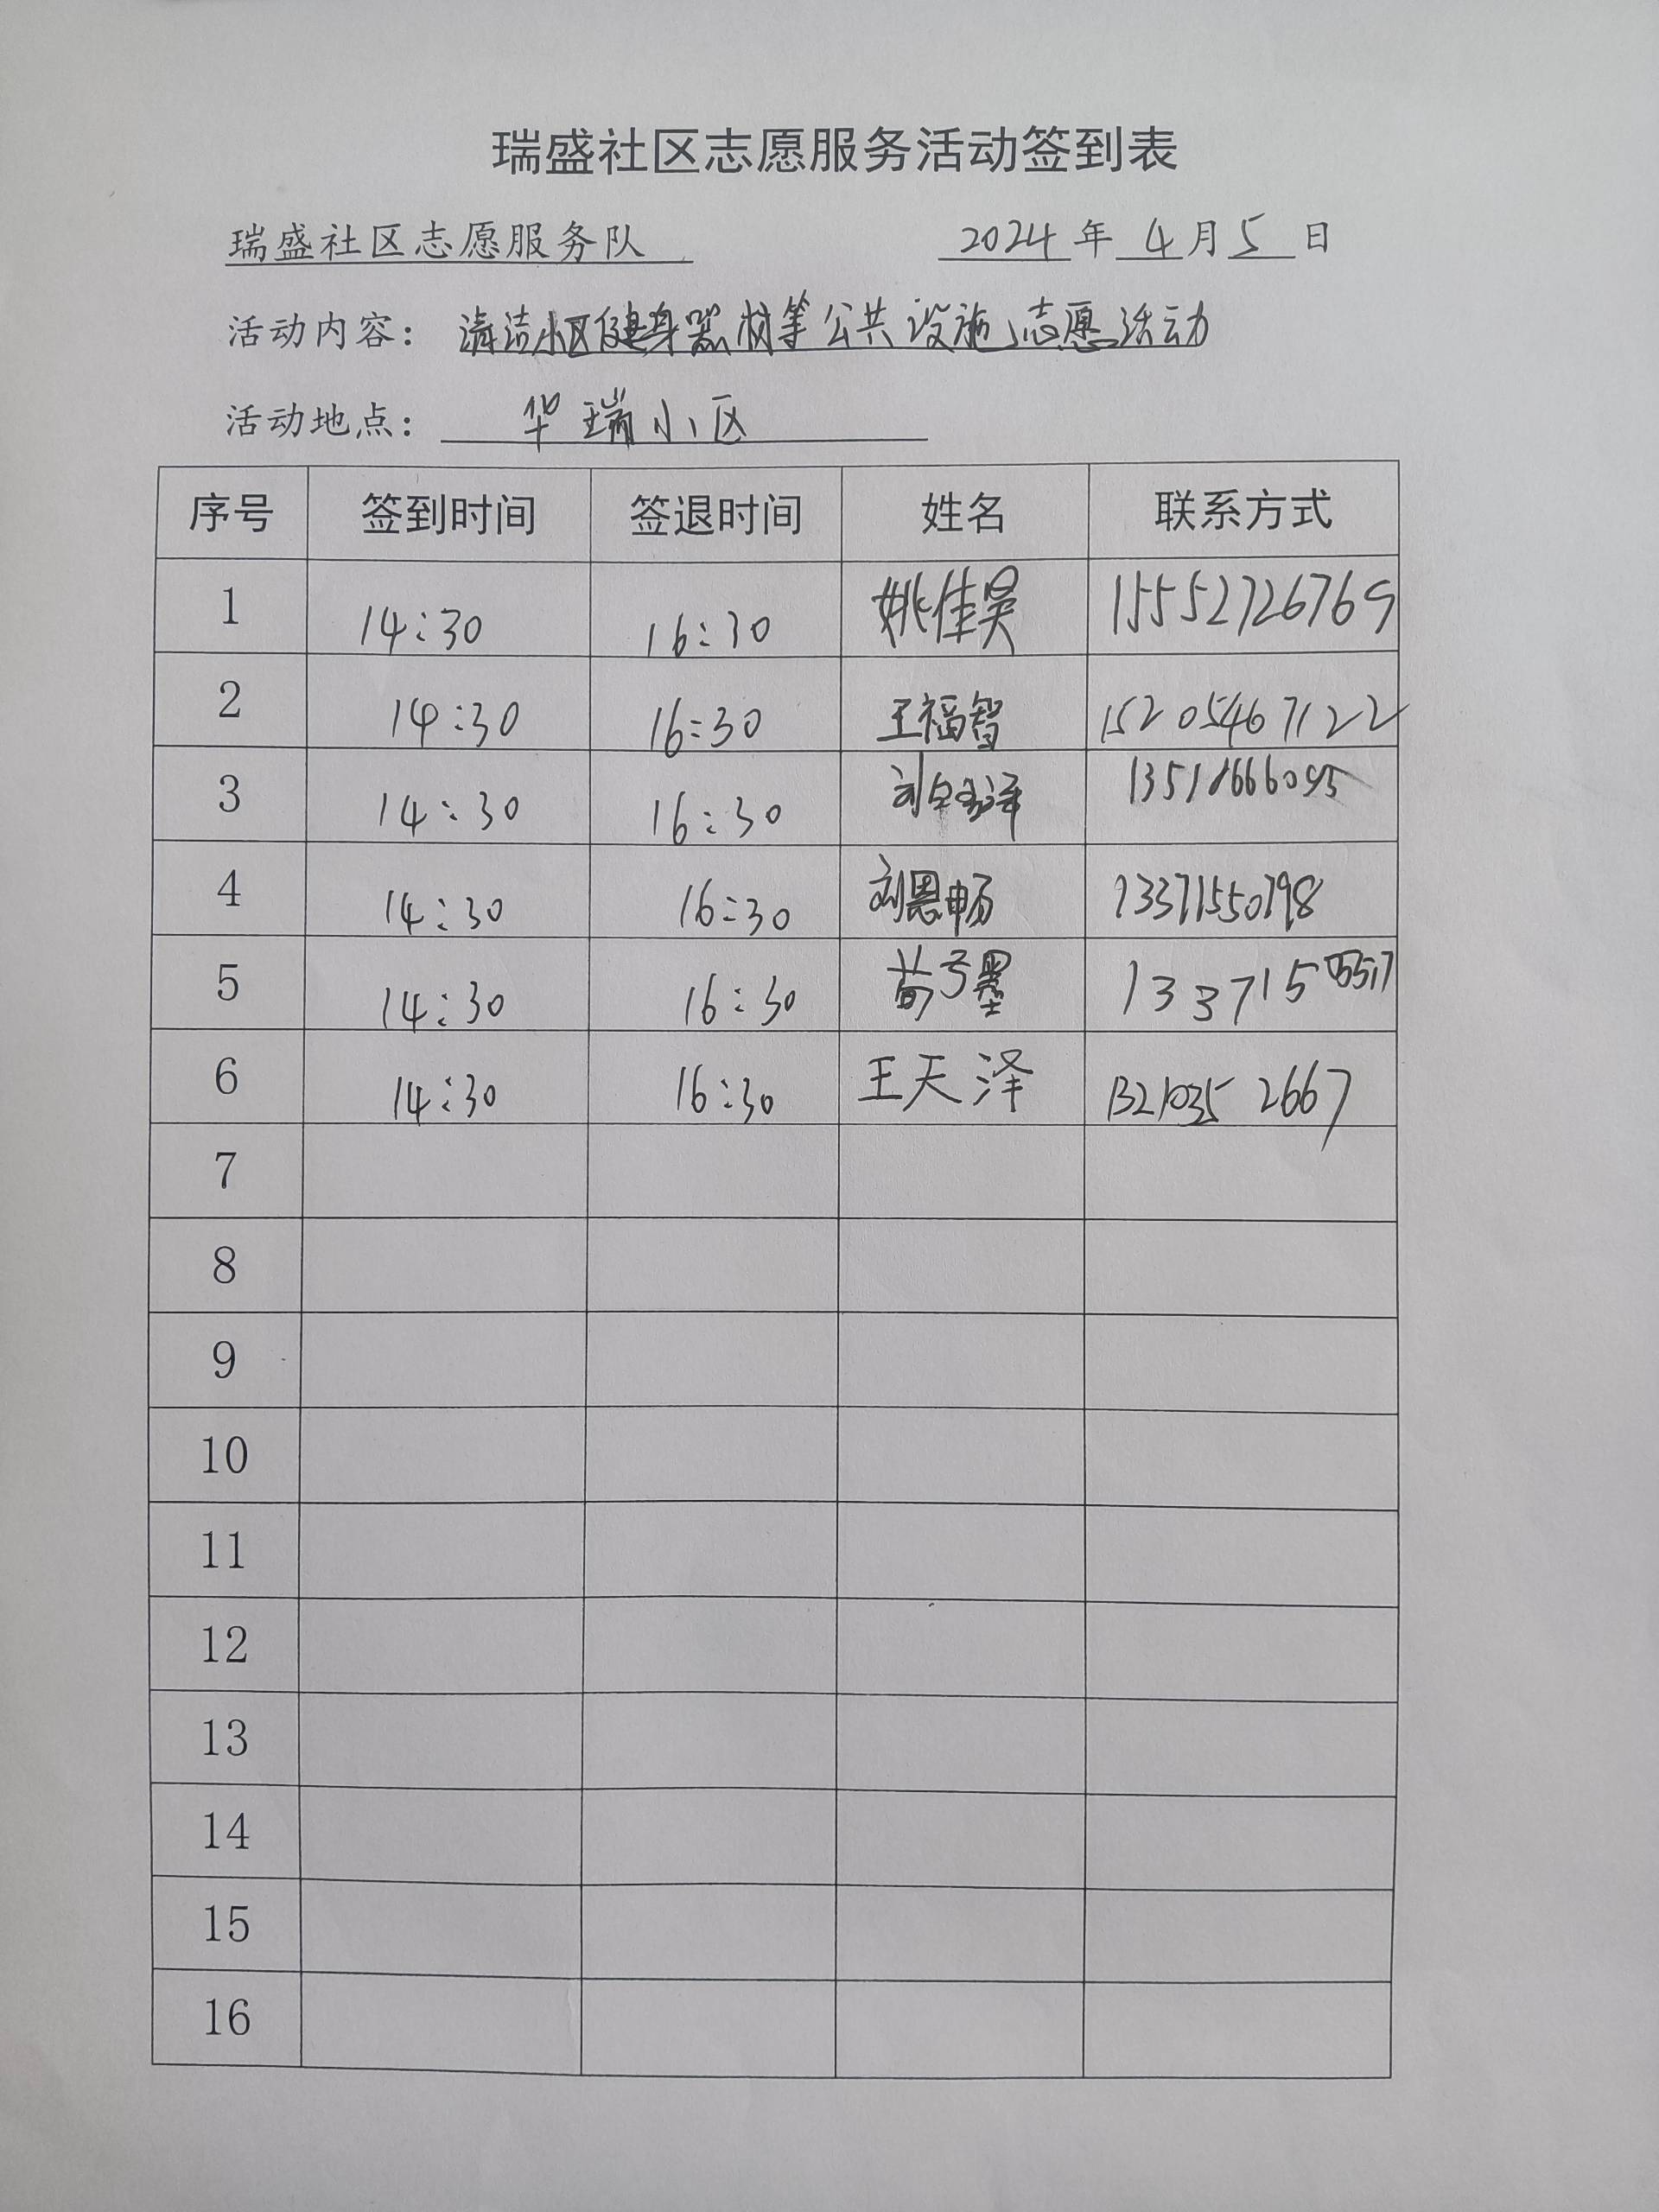 瑞盛社区志愿服务活动签到表
瑞盛社区志愿服务队 2024 年 4 月 5 日
活动内容： 清洁小区健身器材等公共设施志愿活动
活动地点： 华瑞小区
序号 签到时间 签退时间 姓名 联系方式
1 14:30 16:30 姚佳昊 15552726769
2 14:30 16:30 王福智 15205467122
3 14:30 16:30 刘
4 14:30 16:30 刘恩畅 13371550798
5 14:30 16:30
6 14:30 16:30 王天泽 13210352667
7
8
9
10
11
12
13
14
15
16